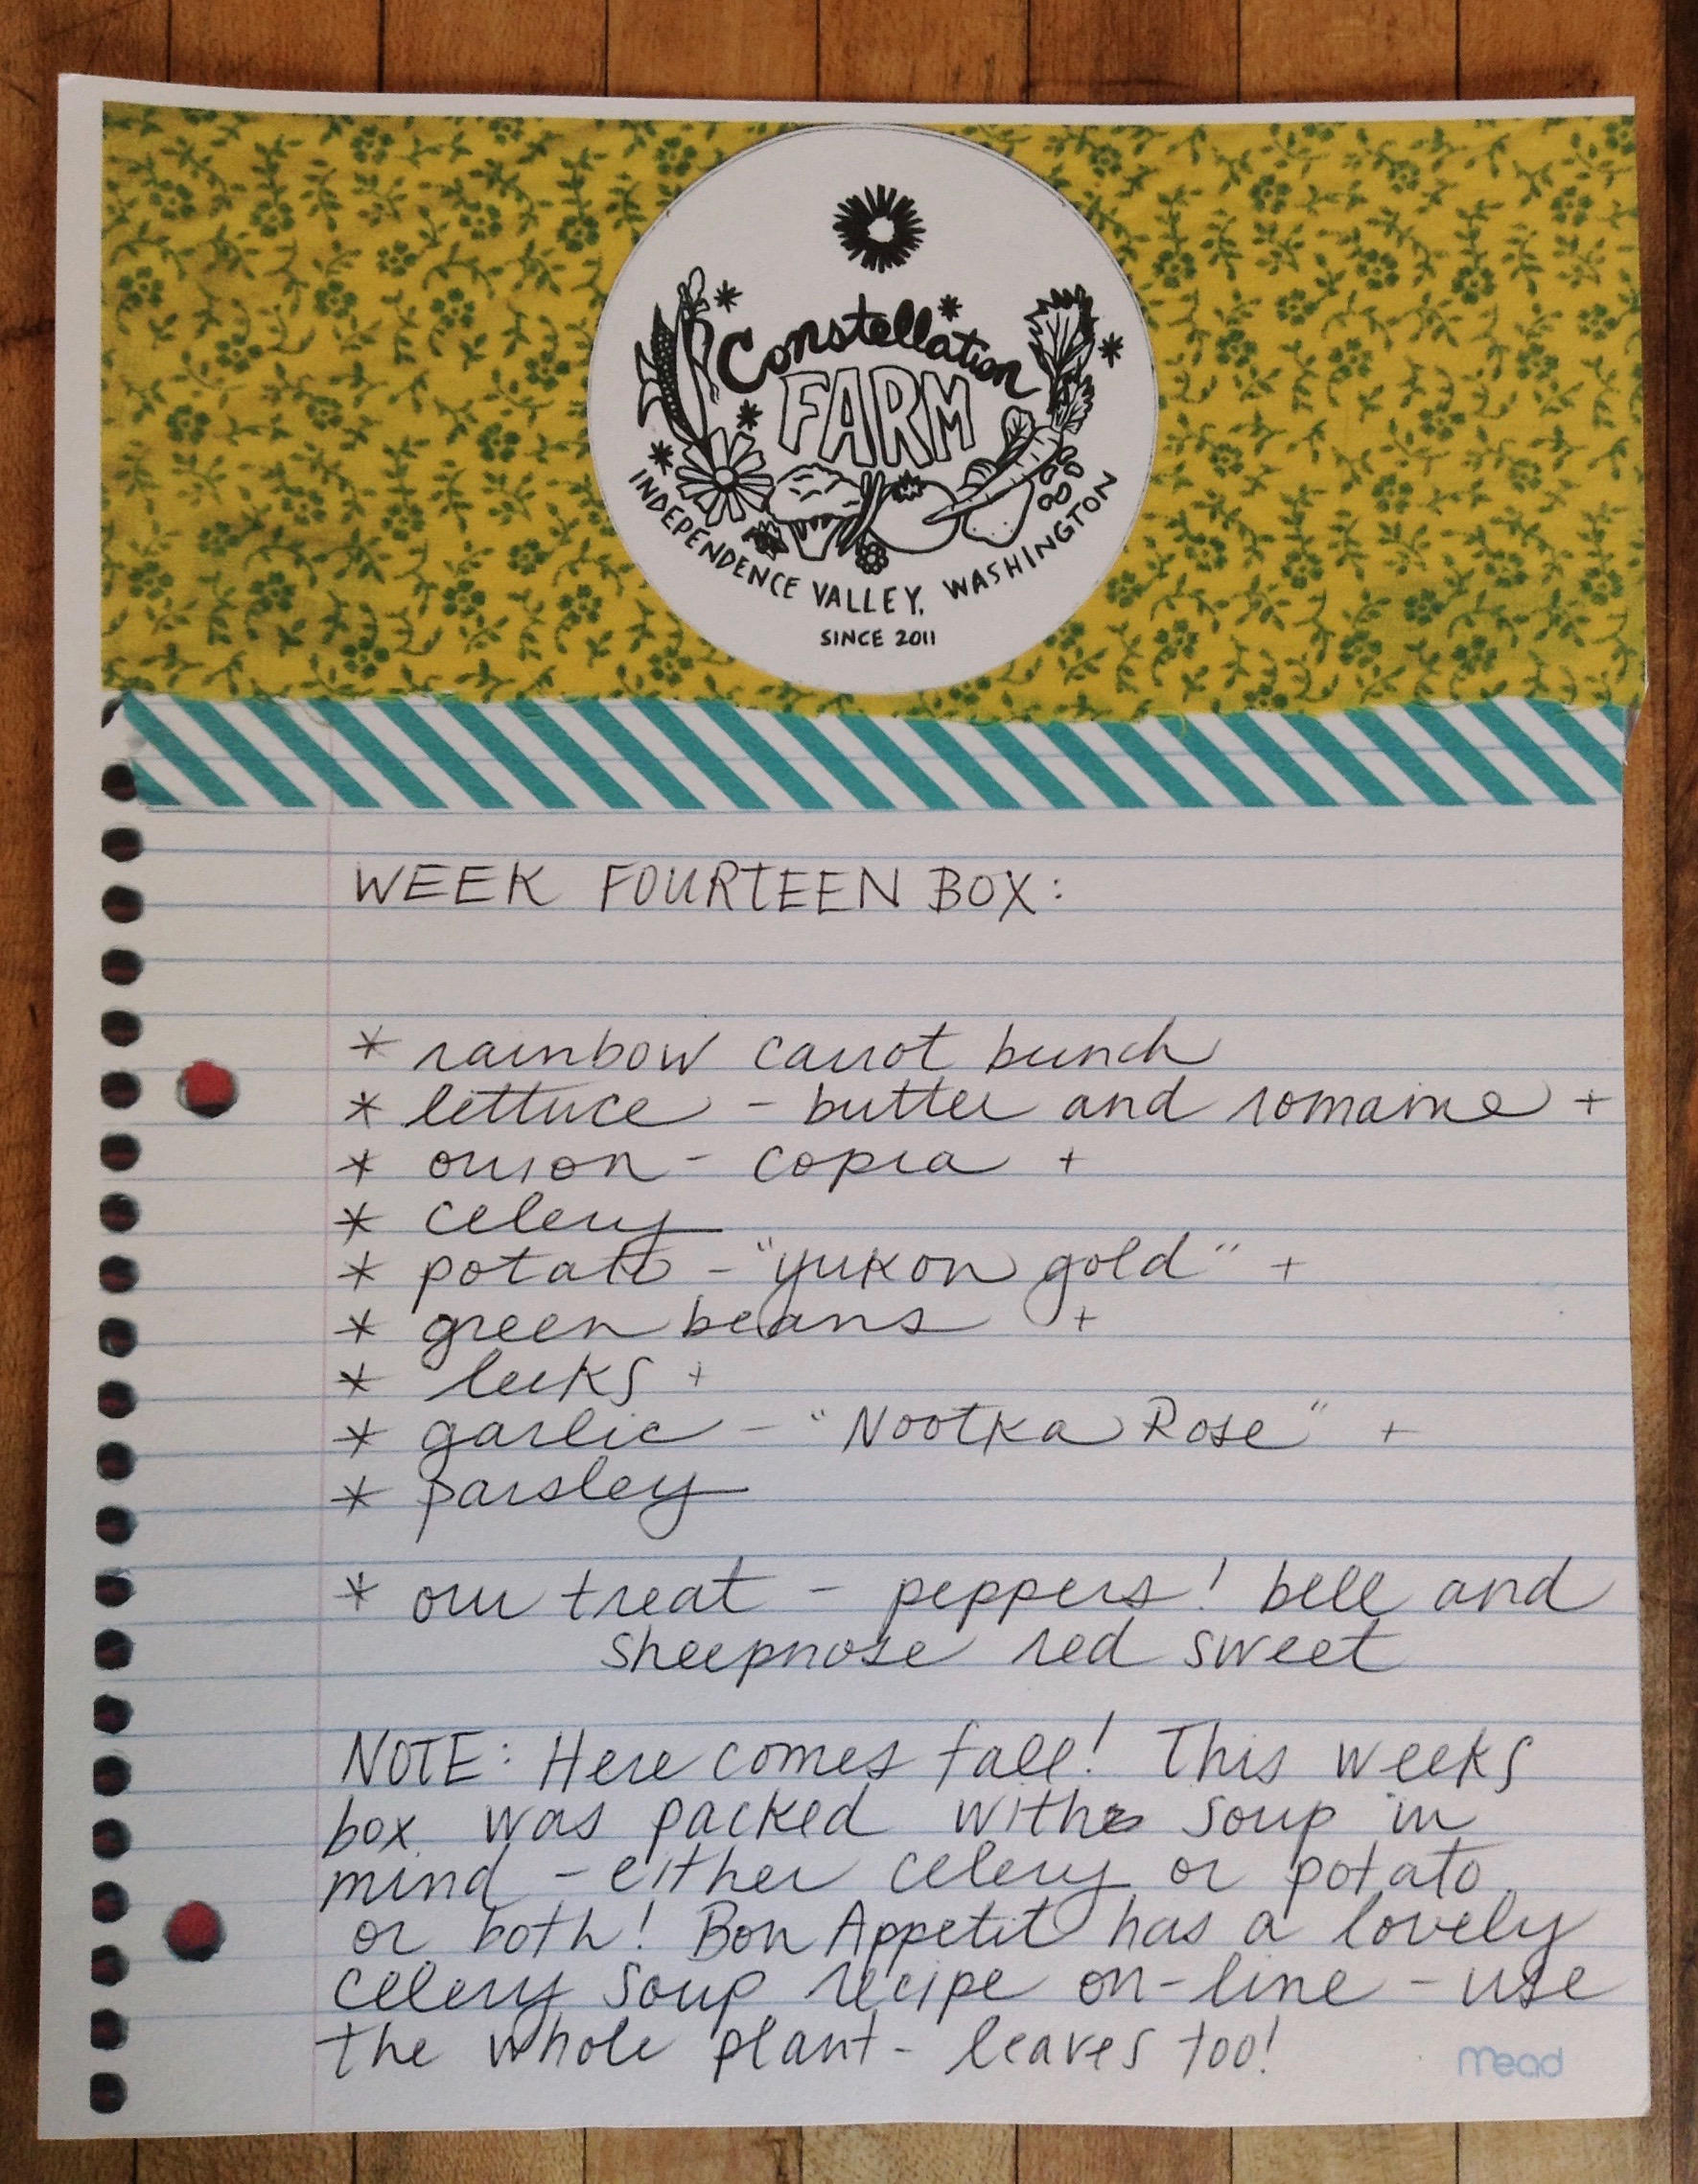 Constellation
FARM
INDEPENDENCE VALLEY, WASHINGTON
SINCE 2011
WEEK FOURTEEN BOX:
* rainbow carrot bunch
* lettuce - butter and romaine +
* onion - copra +
* celery
* potato - "yukon gold" +
* green beans +
* leeks +
* garlic - "Nootka Rose" +
* parsley
* our treat - peppers! bell and
sheepnose red sweet
NOTE: Here comes fall! This weeks
box was packed with soup in
mind - either celery or potato
or both! Bon Appetit has a lovely
celery soup recipe on-line - use
the whole plant - leaves too!
mead